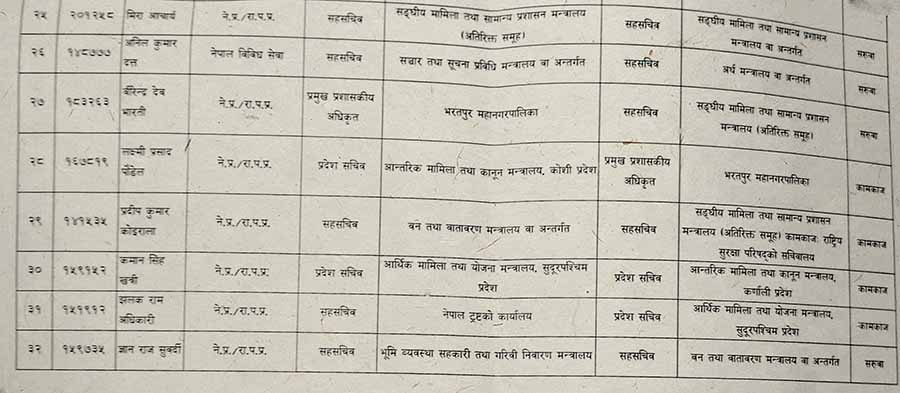 २५ २०१२५८ मिरा आचार्य ने.प्र./रा.प.प्र. सहसचिव सङ्घीय मामिला तथा सामान्य प्रशासन मन्त्रालय (अतिरिक्त समूह) सहसचिव सङ्घीय मामिला तथा सामान्य प्रशासन मन्त्रालय वा अन्तर्गत सरुवा
२६ १४८७७७ अनिल कुमार दत्त नेपाल विविध सेवा सहसचिव सञ्चार तथा सूचना प्रविधि मन्त्रालय वा अन्तर्गत सहसचिव अर्थ मन्त्रालय वा अन्तर्गत सरुवा
२७ १८३२६३ बीरेन्द्र देव भारती ने.प्र./रा.प.प्र. प्रमुख प्रशासकीय अधिकृत भरतपुर महानगरपालिका सहसचिव सङ्घीय मामिला तथा सामान्य प्रशासन मन्त्रालय (अतिरिक्त समूह) सरुवा
२८ १६७८१९ लक्ष्मी प्रसाद पौडेल ने.प्र./रा.प.प्र. प्रदेश सचिव आन्तरिक मामिला तथा कानून मन्त्रालय, कोशी प्रदेश प्रमुख प्रशासकीय अधिकृत भरतपुर महानगरपालिका कामकाज
२९ १४१५३५ प्रदीप कुमार कोइराला ने.प्र./रा.प.प्र. सहसचिव वन तथा वातावरण मन्त्रालय वा अन्तर्गत सहसचिव सङ्घीय मामिला तथा सामान्य प्रशासन मन्त्रालय (अतिरिक्त समूह) कामकाजः राष्ट्रिय सुरक्षा परिषद्को सचिवालय कामकाज
३० १५९१५२ कमान सिंह खत्री ने.प्र./रा.प.प्र. प्रदेश सचिव आर्थिक मामिला तथा योजना मन्त्रालय, सुदूरपश्चिम प्रदेश प्रदेश सचिव आन्तरिक मामिला तथा कानून मन्त्रालय, कर्णाली प्रदेश कामकाज
३१ १५१९१२ झलक राम अधिकारी ने.प्र./रा.प.प्र. सहसचिव नेपाल ट्रष्टको कार्यालय प्रदेश सचिव आर्थिक मामिला तथा योजना मन्त्रालय, सुदूरपश्चिम प्रदेश कामकाज
३२ १५९७३५ ज्ञान राज सुवेदी ने.प्र./रा.प.प्र. सहसचिव भूमि व्यवस्था सहकारी तथा गरिवी निवारण मन्त्रालय सहसचिव वन तथा वातावरण मन्त्रालय वा अन्तर्गत सरुवा